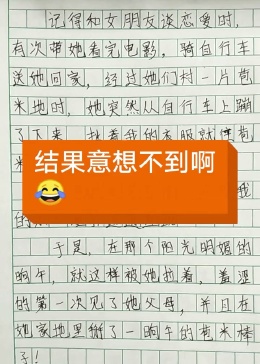 记得和女朋友谈恋爱时，
有次带她看完电影，骑自行车
送她回家，经过她们村一片苞
米地时，她突然从自行车上蹦
了下来，拽着我的衣服就往苞
米
结果意想不到啊
我
的
于是，在那个阳光明媚的
晌午，就这样被她拉着，羞涩
的第一次见了她父母，并且在
她家地里掰了一晌午的苞米棒
子！